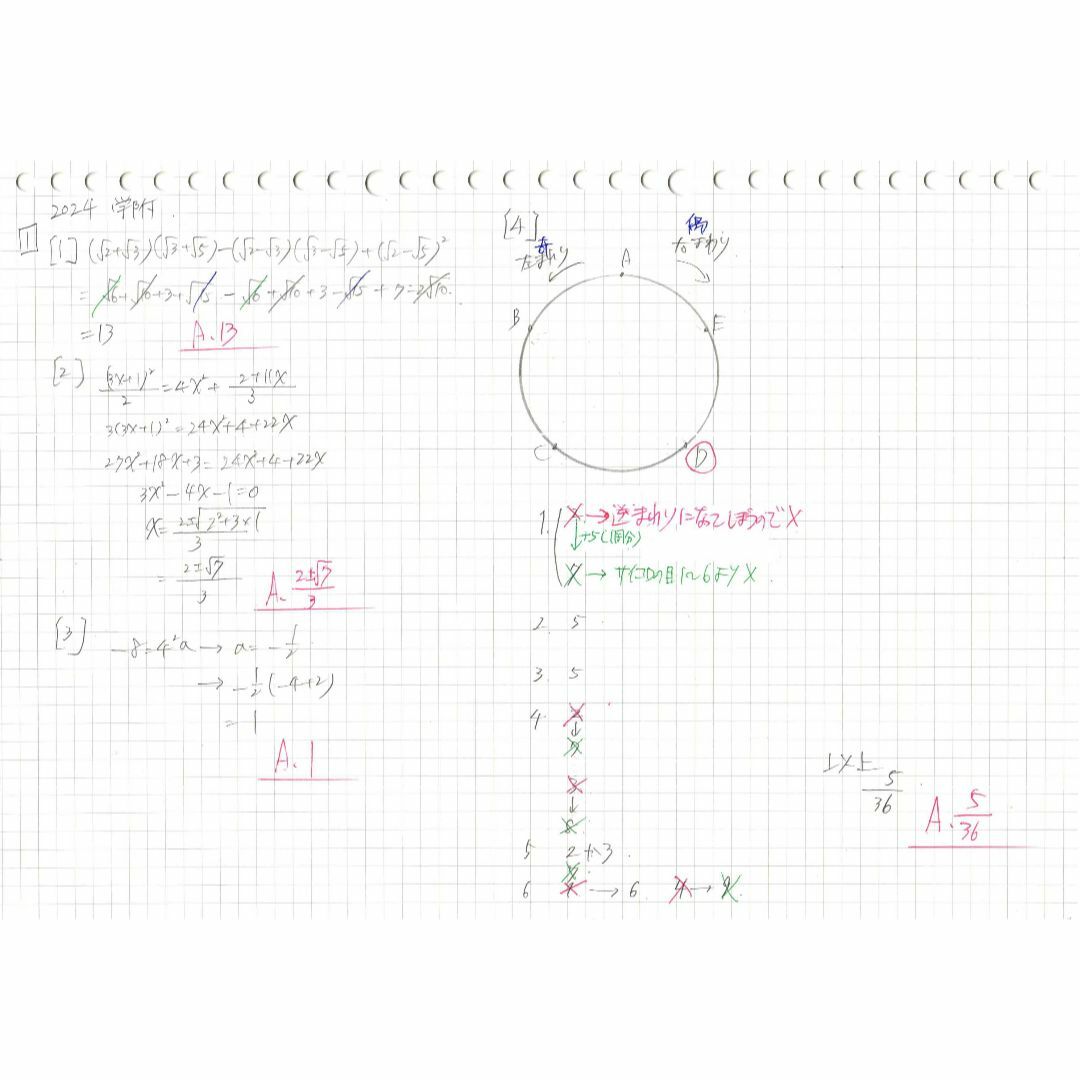 2024 学附.
1
[1] (√2+√3)(√3+√5)-(√2-√3)(√3-√5)+(√2-√5)²
= √6+√10+3+√15 - √6+√10+3-√15+7-2√10.
=13
A. 13
[2] (3x+1)²/2 = 4x²+ (2+11x)/3
3(3x+1)²=24x²+4+22x
27x²+18x+3=24x²+4+22x
3x²-4x-1=0
x= (2±√(2²+3×1))/3
= (2±√7)/3
A. (2±√7)/3
[3] -8=4²a → a=-1/2
→ -1/2(-4+2)
=1
A. 1
[4]
奇
左まわり
偶
右まわり
A
B
E
C
D
→逆まわりになってしまうので×
↓+5(1周分)
→ サイコロの目1~6より×
2. 5
3. 5
4.
↓
↓
5 2か3.
6 → 6 →
以上
5/36
A. 5/36